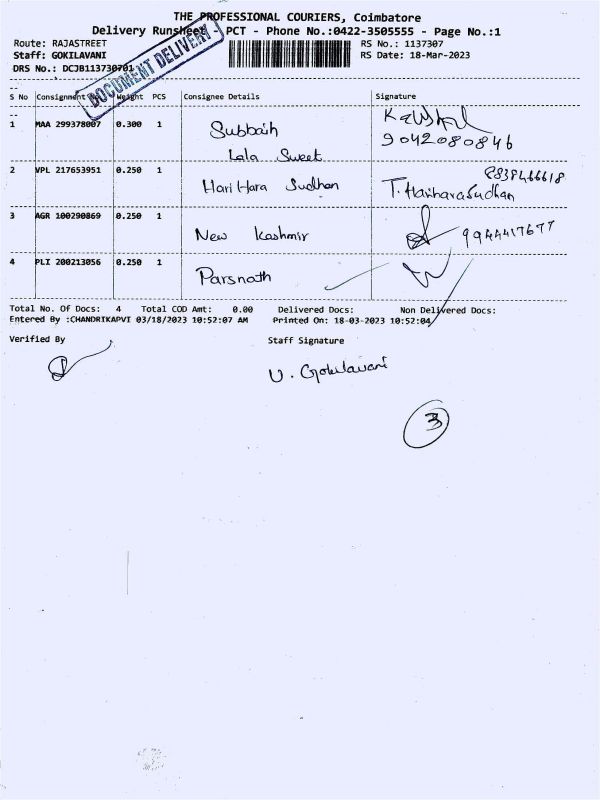 THE PROFESSIONAL COURIERS, Coimbatore
Delivery Runsheet - PCT - Phone No.:0422-3505555 - Page No.:1
Route: RAJASTREET
RS No.: 1137307
Staff: GOKILAVANI
RS Date: 18-Mar-2023
DRS No.: DCJB113730701
DOCUMENT DELIVERY
S No Consignment Weight PCS Consignee Details Signature
1 MAA 299378007 0.300 1 Subbaih
Lala Sweet
9042080846
2 VPL 217653951 0.250 1 Hari Hara Sudhan
8838466618
T. Hariharasudhan
3 AGR 100290869 0.250 1 New Kashmir 9944417677
4 PLI 200213056 0.250 1 Parsnath
Total No. Of Docs: 4 Total COD Amt: 0.00 Delivered Docs: Non Delivered Docs:
Entered By :CHANDRIKAPVI 03/18/2023 10:52:07 AM Printed On: 18-03-2023 10:52:04
Verified By Staff Signature
U. Gokilavani
3